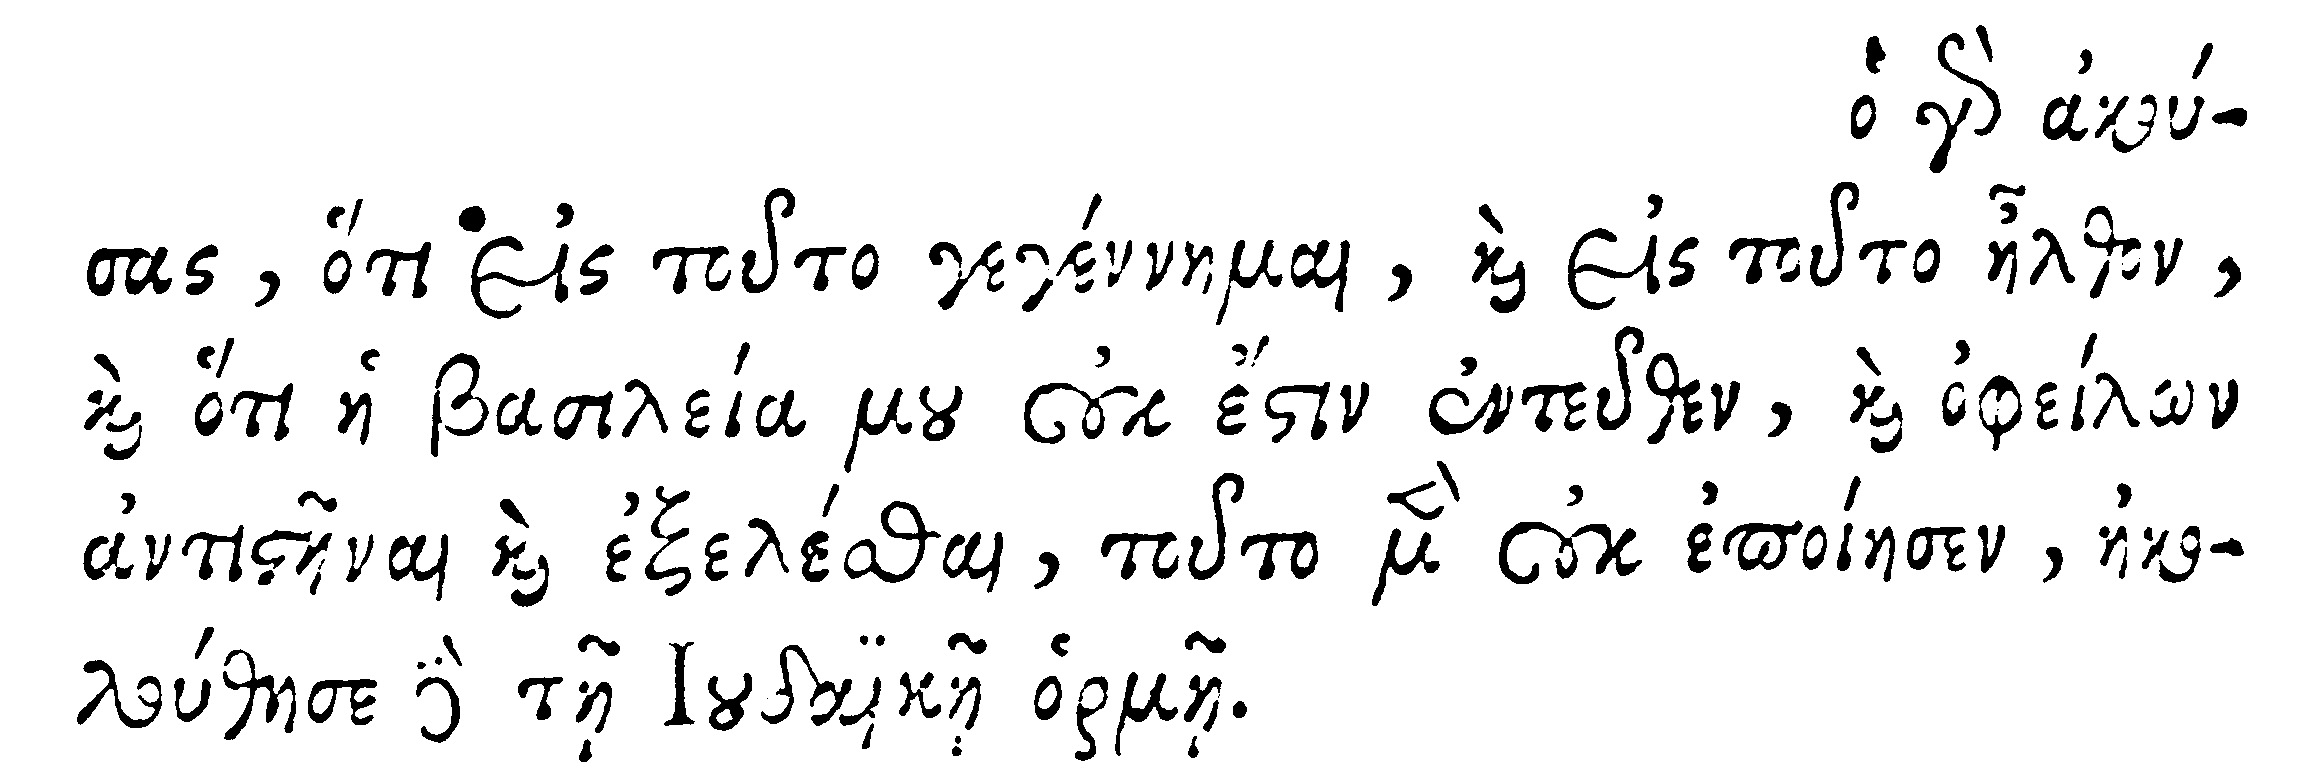 ὁ γὰρ ἀκού-
σας, ὅτι εἰς τοῦτο γεγέννημαι, καὶ εἰς τοῦτο ἦλθον,
καὶ ὅτι ἡ βασιλεία μου οὐκ ἔστιν ἐντεῦθεν, καὶ ὀφείλων
ἀντιστῆναι καὶ ἐξελέσθαι, τοῦτο μὲν οὐκ ἐποίησεν, ἠκο-
λούθησε δὲ τῇ Ἰουδαϊκῇ ὁρμῇ.